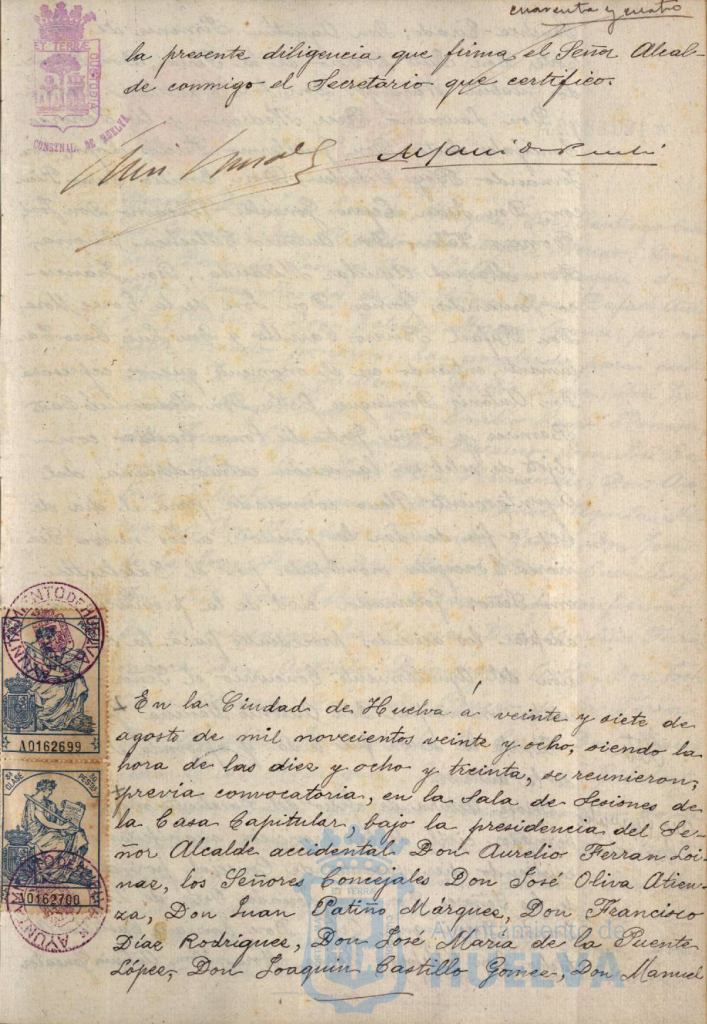 cuarenta y cuatro
ET TERRÆ CUSTODIA
CONSTNAL. DE HUELVA
la presente diligencia que firma el Señor Alcal-
de conmigo el Secretario que certifico.
AYUNTAMIENTO DE HUELVA
A0162699
8ª CLASE
A0162700
AYUNTAMIENTO DE HUELVA
En la Ciudad de Huelva á veinte y siete de
agosto de mil novecientos veinte y ocho, siendo la
hora de las diez y ocho y treinta, se reunieron,
previa convocatoria, en la Sala de Sesiones de
la Casa Capitular, bajo la presidencia del Se-
ñor Alcalde accidental Don Aurelio Ferran Loi-
naz, los Señores Concejales Don José Oliva Atien-
za, Don Juan Patiño Márquez, Don Francisco
Díaz Rodriguez, Don José Maria de la Puente
López, Don Joaquín Castillo Gomez, Don Manuel
Ayuntamiento de
HUELVA